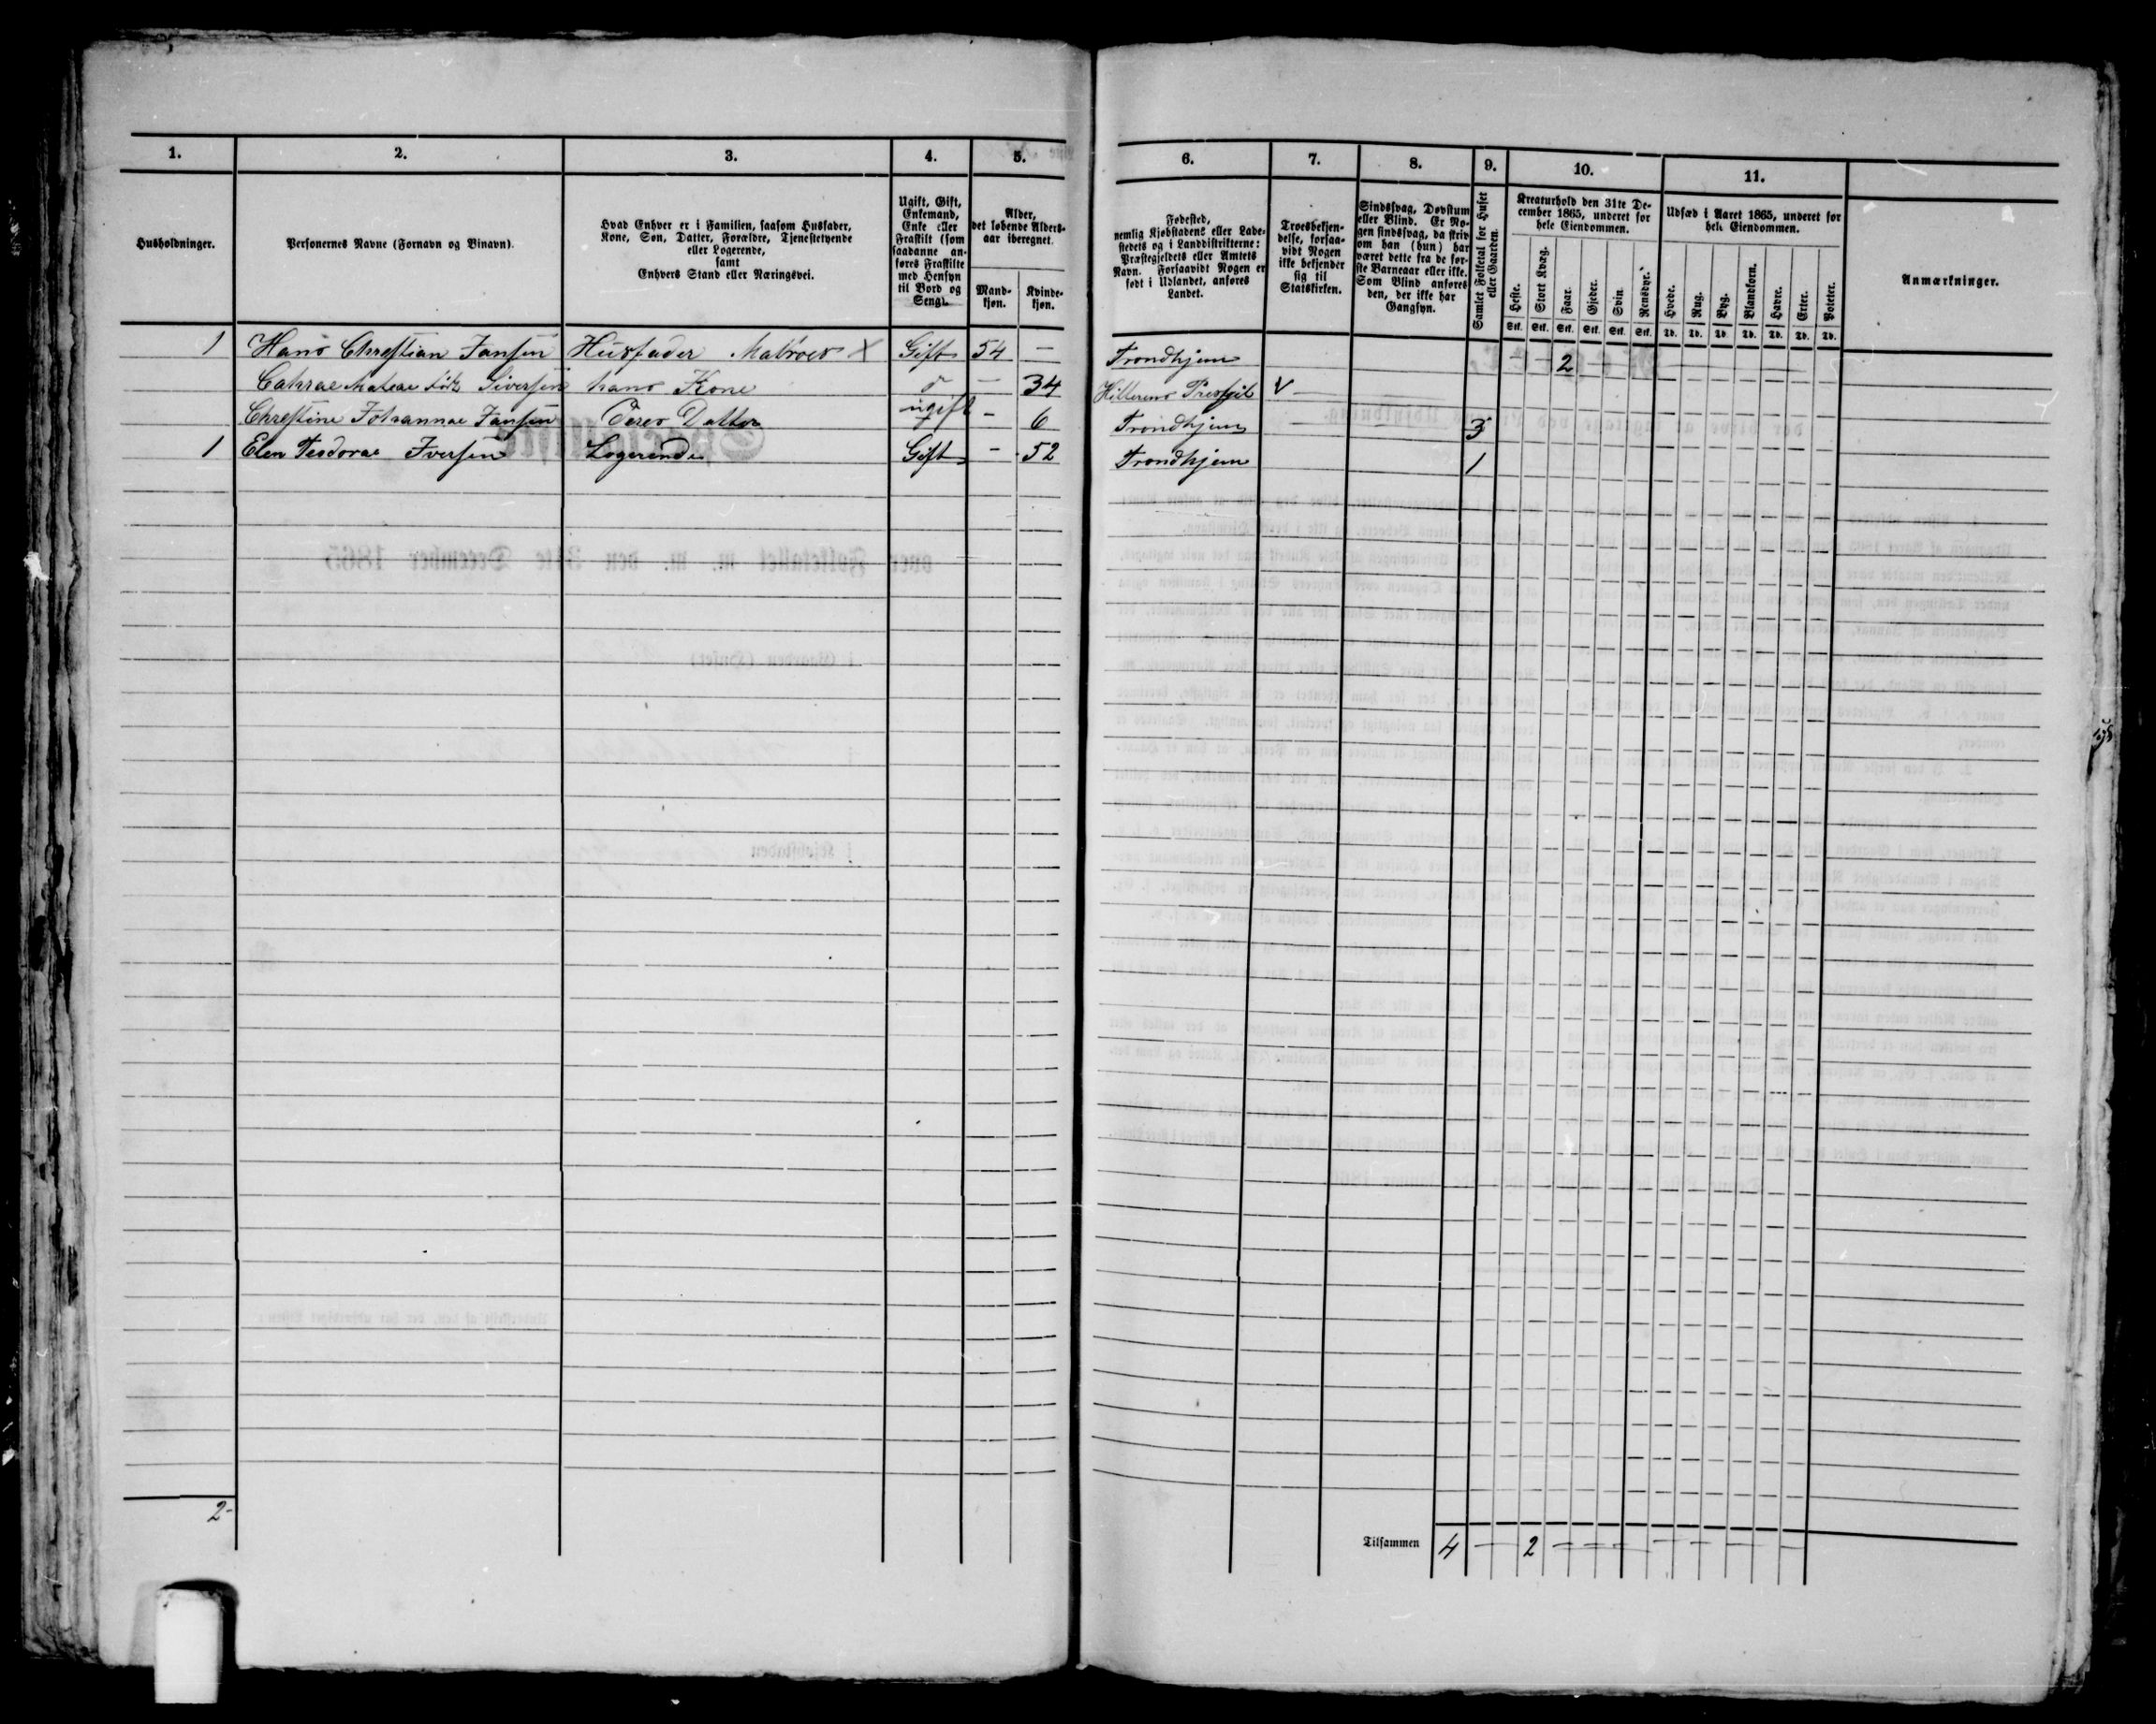 1. 2. 3. 4. 5. 6. 7. 8. 9. 10. 11.
Husholdninger.
Personernes Navne (Fornavn og Binavn).
Hvad Enhver er i Familien, saasom Husfader,
Kone, Søn, Datter, Forældre, Tjenestetyende
eller Logerende,
samt
Enhvers Stand eller Næringsvei.
Ugift, Gift,
Enkemand,
Enke eller
Fraskilt (som
saadanne an-
føres Fraskilte
med Hensyn
til Bord og
Seng).
Alder,
det løbende Alders-
aar iberegnet.
Mand-
kjøn.
Kvinde-
kjøn.
Fødested,
nemlig Kjøbstadens eller Lade-
stedets og i Landdistrikterne:
Præstegjeldets eller Amtets
Navn. Forsaavidt Nogen er
født i Udlandet, anføres
Landet.
Troesbekjen-
delse, forsaa-
vidt Nogen
ikke bekjender
sig til
Statskirken.
Sindssvag, Døvstum
eller Blind. Er No-
gen sindssvag, da skriv
om han (hun) har
været dette fra de før-
ste Barneaar eller ikke.
Som Blind anføres
den, der ikke har
Gangsyn.
Samlet Folketal for Huset
eller Gaarden.
Kreaturhold den 31te De-
cember 1865, underet for
hele Eiendommen.
Heste. Stort Kvæg. Faar. Gjeder. Svin. Rensdyr.
Stk. Stk. Stk. Stk. Stk. Stk.
Udsæd i Aaret 1865, underet for
hele Eiendommen.
Hvede. Rug. Byg. Blandkorn. Havre. Erter. Poteter.
Td. Td. Td. Td. Td. Td. Td.
Anmærkninger.
1 Hans Chrestian Jansen Husfader Matroes X Gift 54 — Trondhjem — — 2 —
Siversen hans Kone d — 34 Hitterens V —
Chrestine Johannae Jansen Deres Datter ugift — 6 Trondhjem — 3
1 Elen Teodorae Iversen Logerende Gift — 52 Trondhjem 1
2-
Tilsammen 4 — 2 — — — — — — —